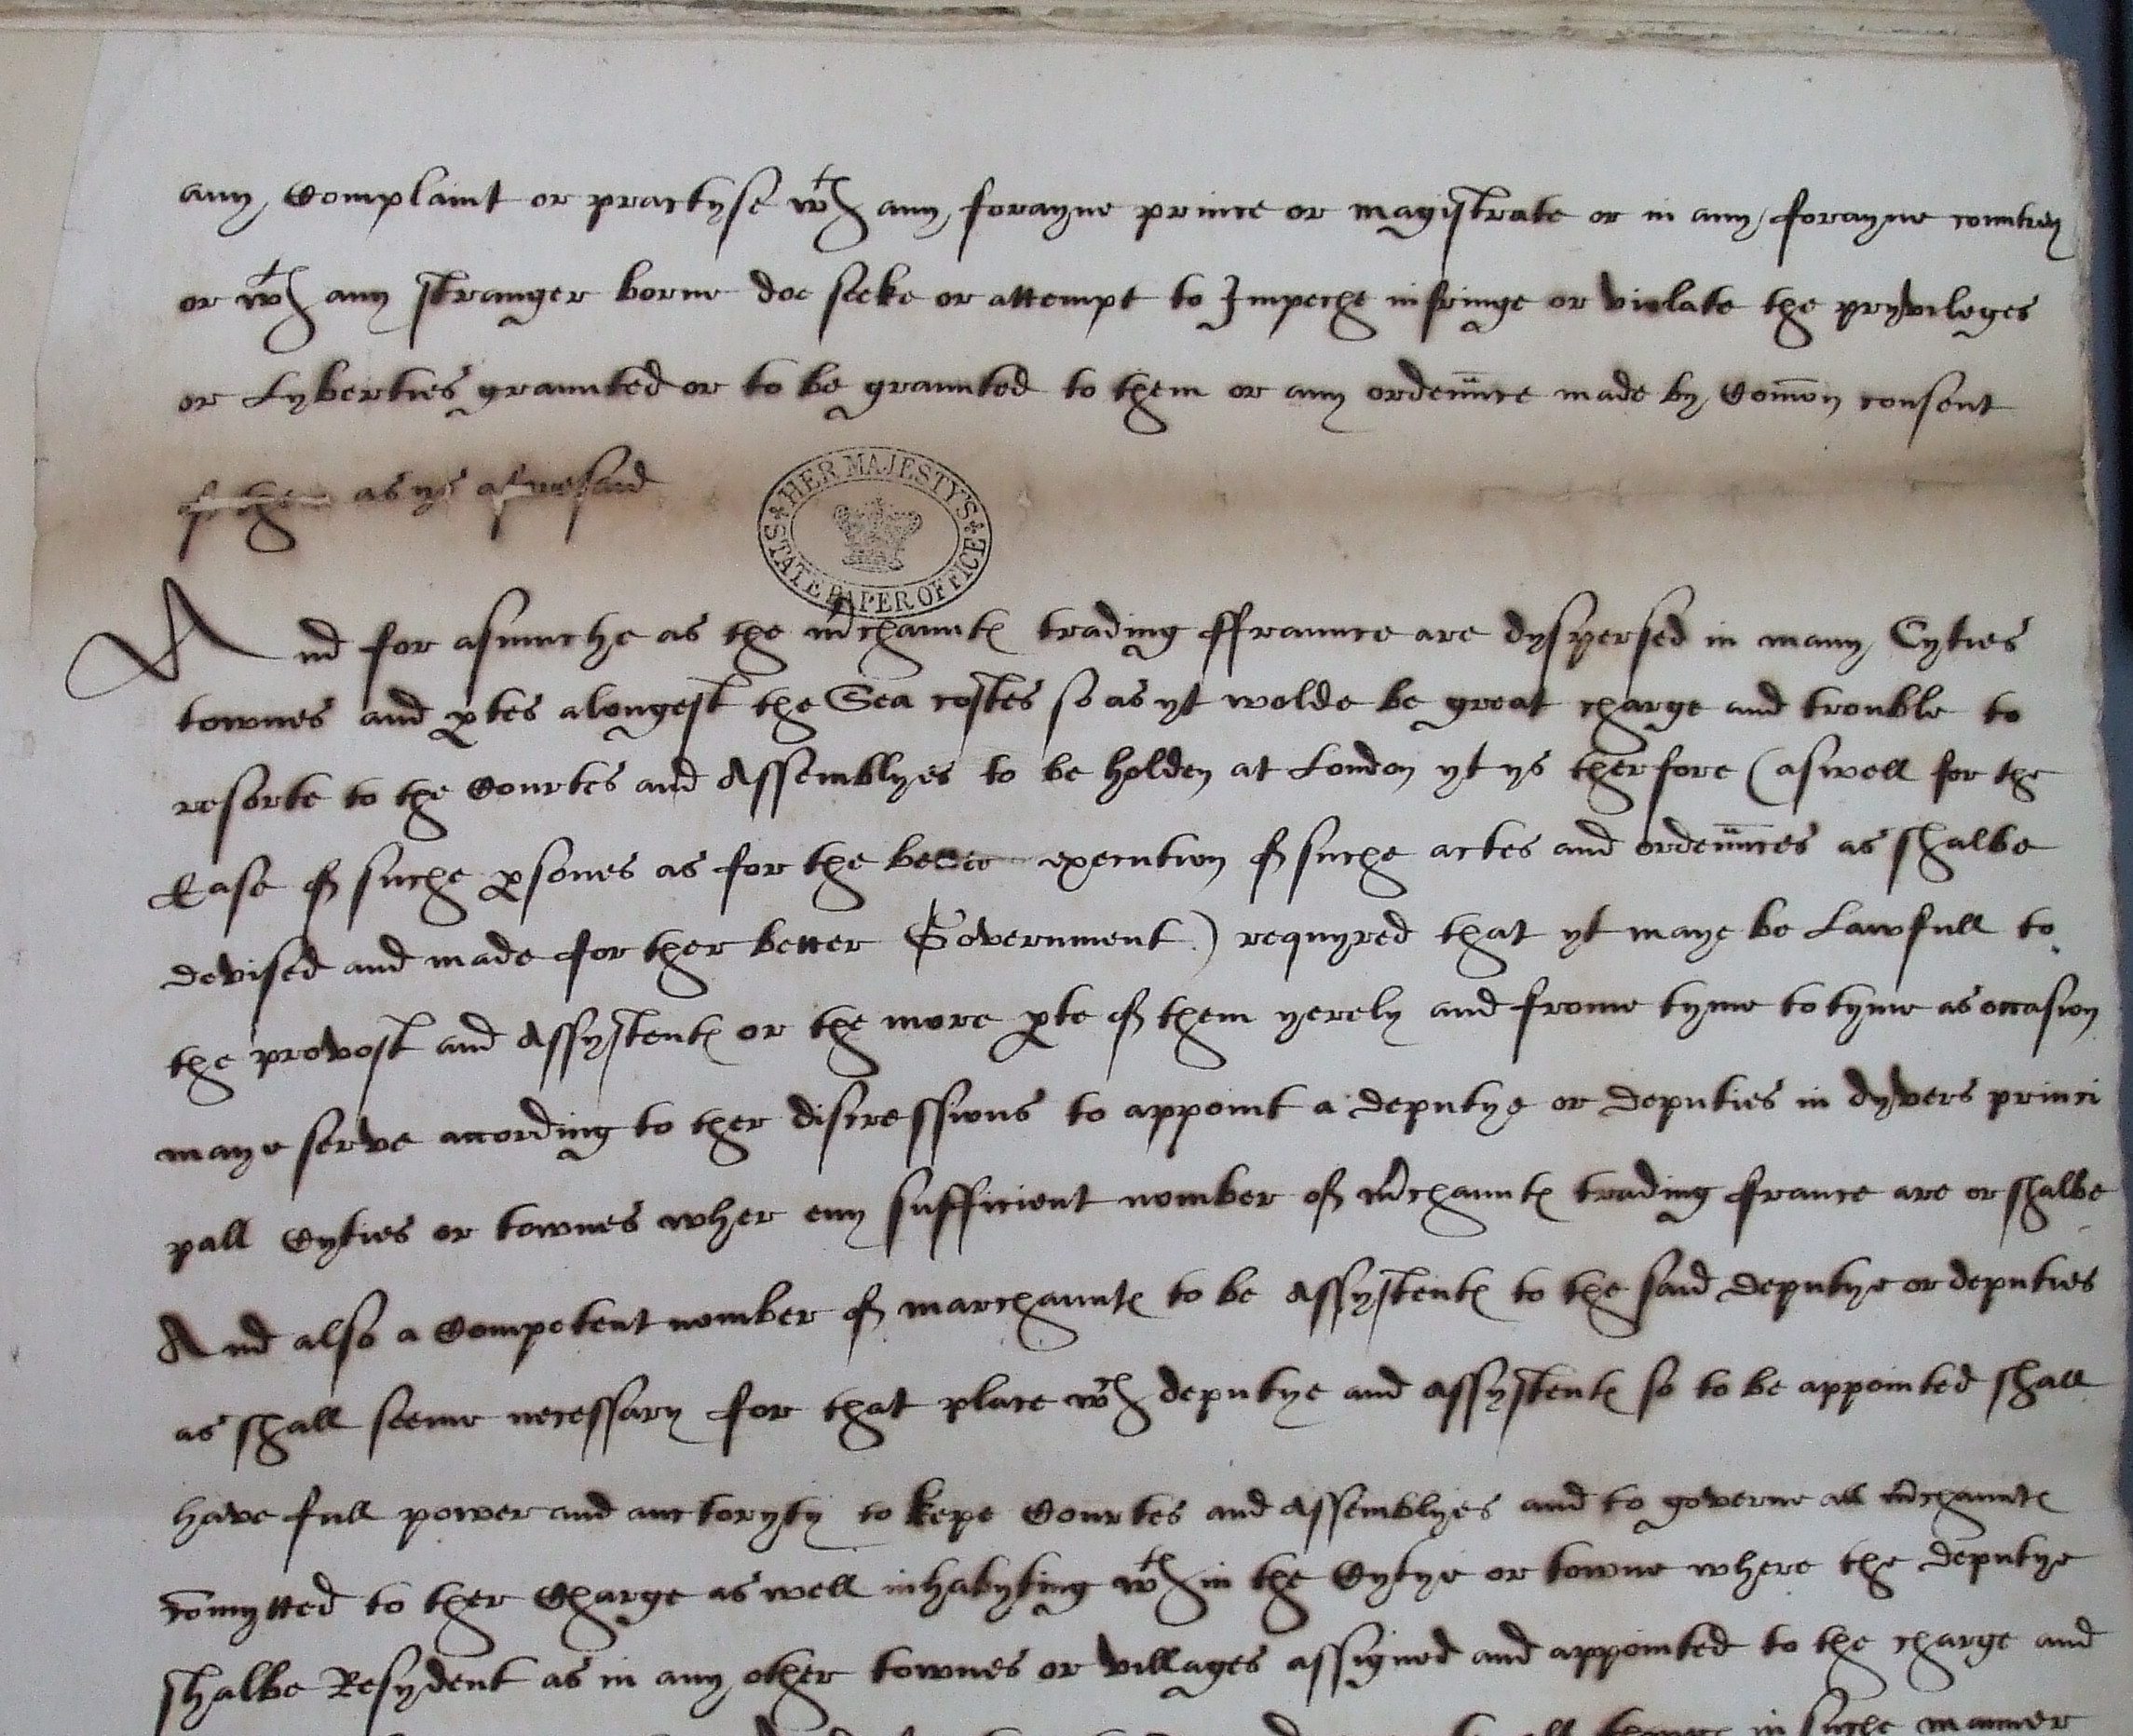 any Complaint or practyse wth any forayne prince or magistrate or in any forayne countrey
or wth any stranger borne doe seeke or attempt to Impeche infringe or violate the pryvileges
or Lyberties graunted or to be graunted to them or any ordenñce made by Com̄on consent
of them as ys aforesaid
HER MAJESTY'S STATE PAPER OFFICE
And for asmuche as the mrchauntꝭ trading ffraunce are dyspersed in many Cyties
townes and ꝑtes alongest the Sea costes so as yt wolde be great charge and trouble to
resorte to the Courtes and Assemblyes to be holden at London yt ys therfore (aswell for the
Ease of suche ꝑsones as for the better execution of suche actes and ordenñces as shalbe
devised and made for ther better Government) requyred that yt maye be Lawfull to
the provost and Assystentꝭ or the more ꝑte of them yerely and frome tyme to tyme as occasion
maye serve according to ther discressions to appoint a deputye or deputies in dyvers princi
pall Cyties or townes wher eny sufficient nomber of mrchauntꝭ trading france are or shalbe
And also a Competent nomber of marchauntꝭ to be Assystentꝭ to the said deputye or deputies
as shall seeme necessary for that place wch deputye and Assystentꝭ so to be appointed shall
have full power and auctoryty to kepe Courtes and Assemblyes and to governe all mrchauntꝭ
com̄ytted to ther Charge as well inhabyting wthin the Cytye or towne where the deputye
shalbe Resydent as in any other townes or villages assigned and appointed to the charge and
in suche manner